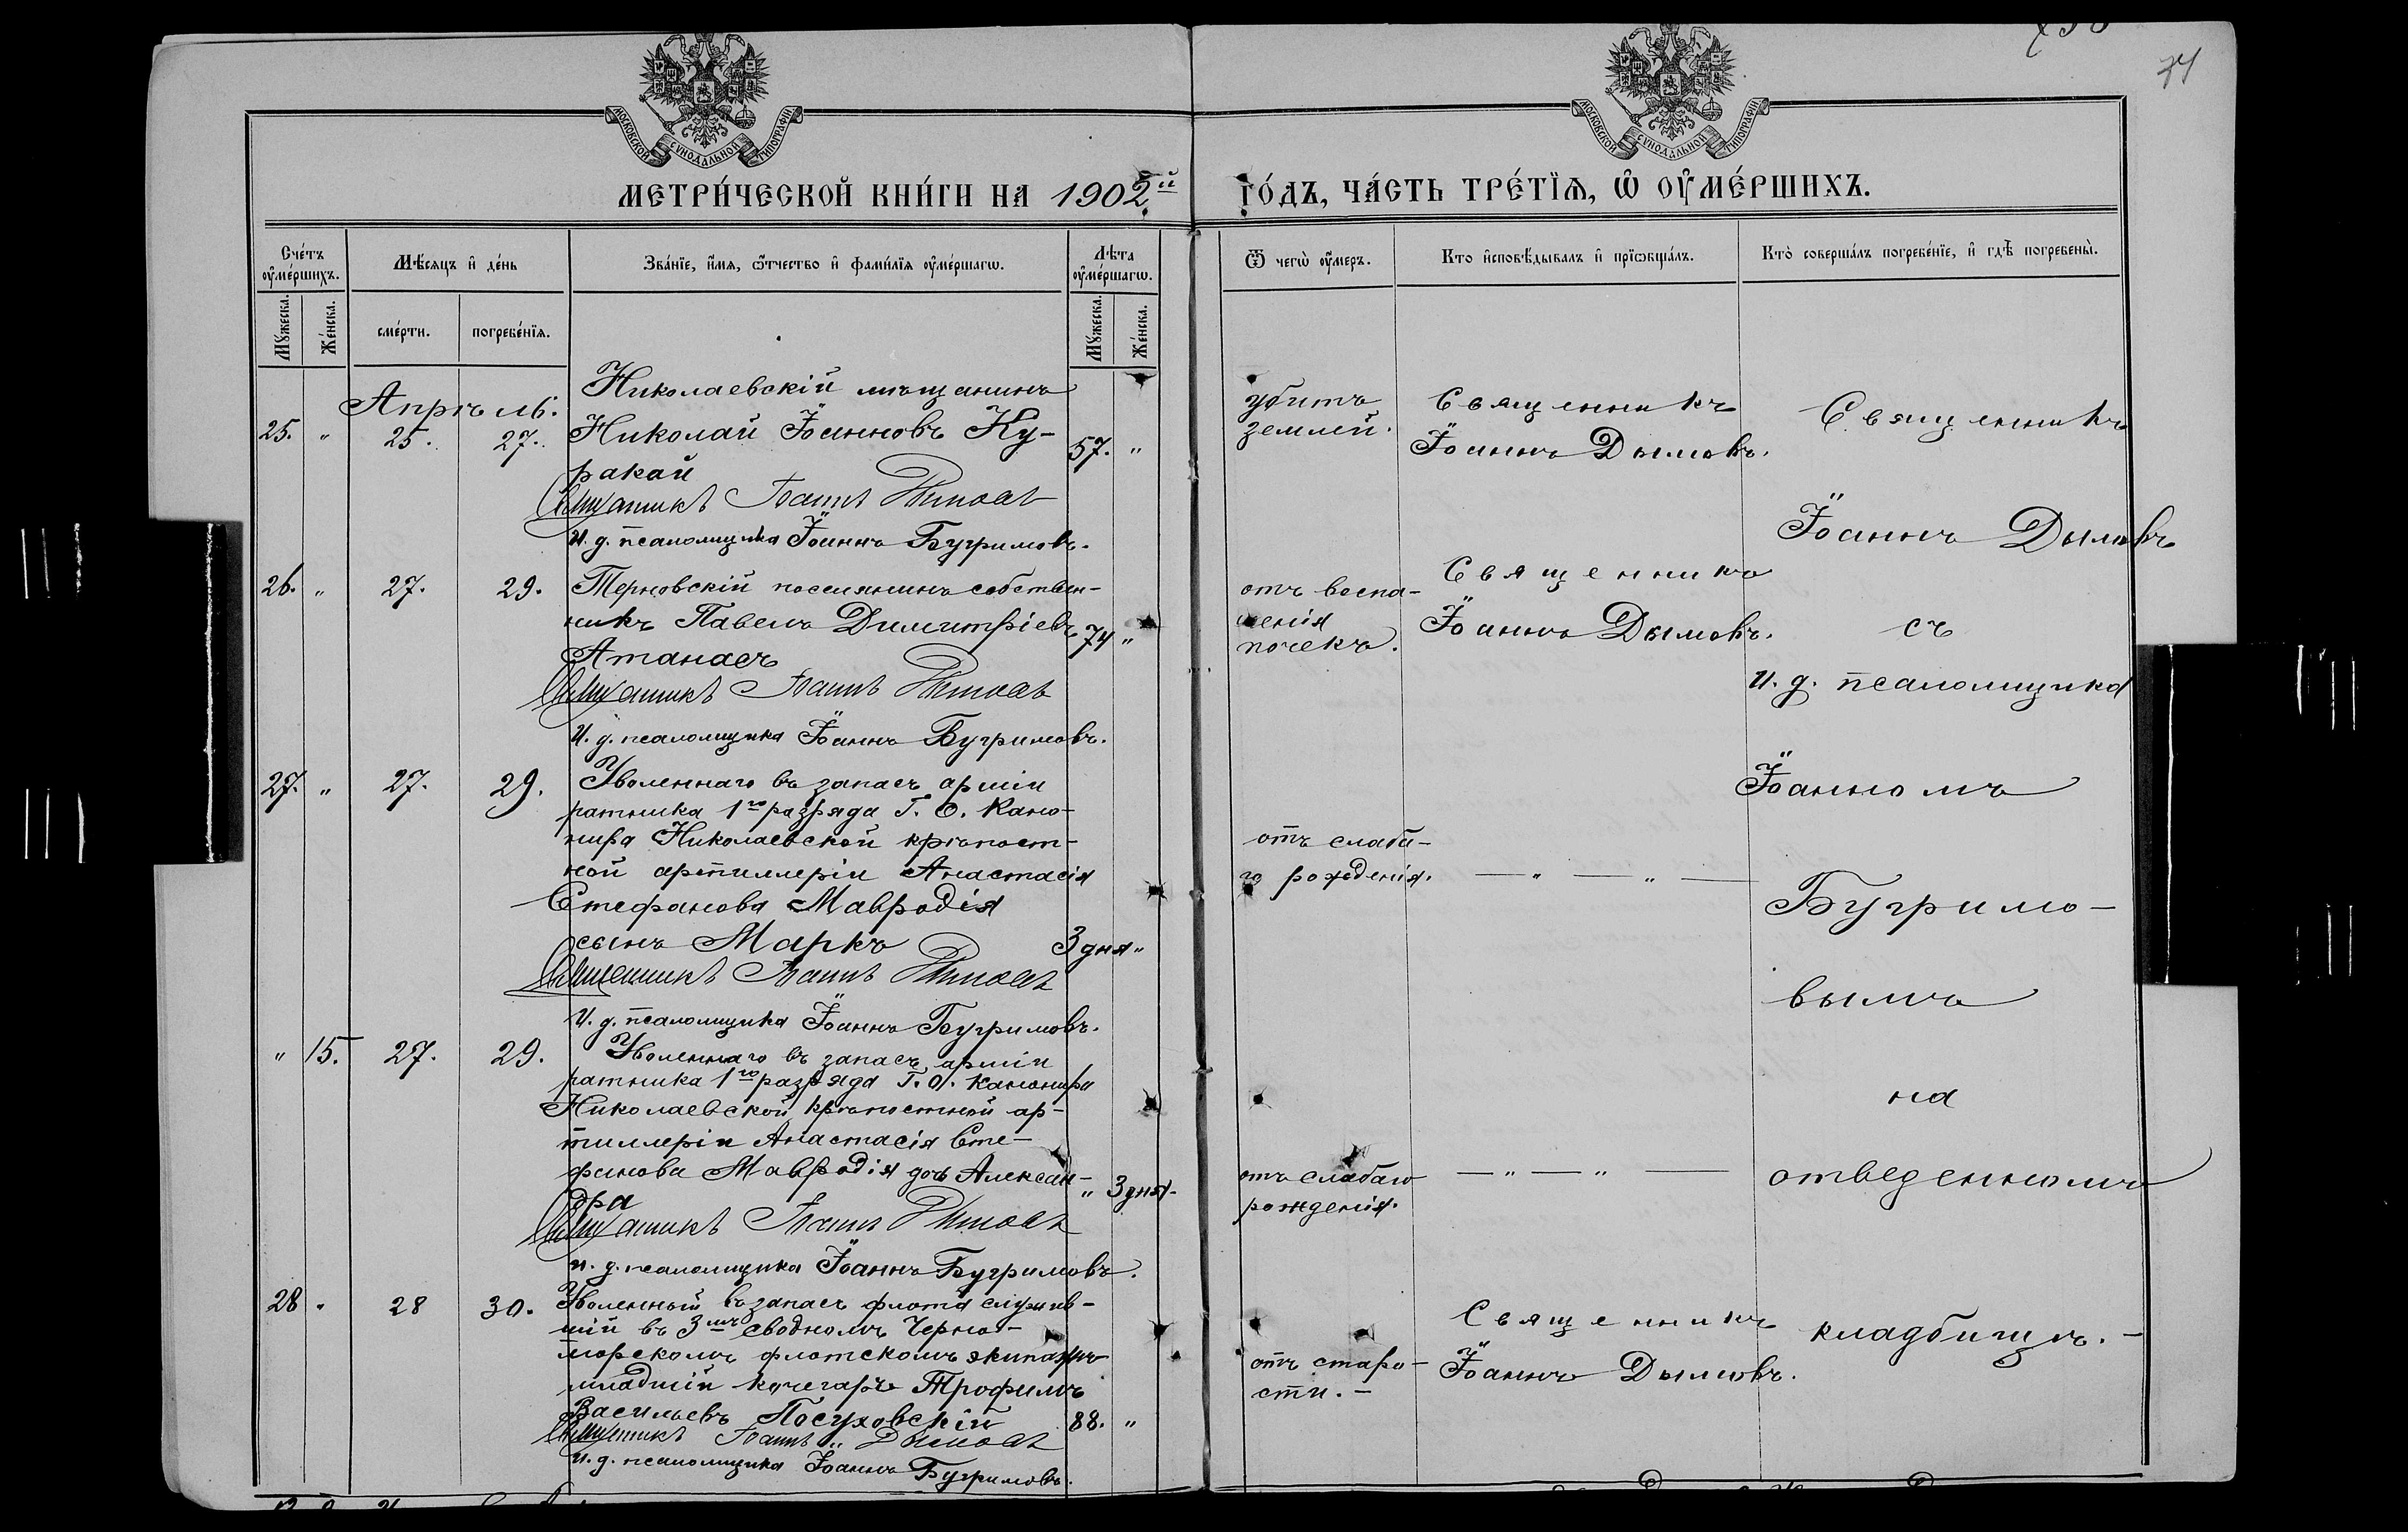 74
МОСКОВСКОЙ СѴНОДАЛЬНОЙ ТИПОГРАФІИ
МОСКОВСКОЙ СѴНОДАЛЬНОЙ ТИПОГРАФІИ
МЕТРИ́ЧЕСКОЙ КНИ́ГИ НА 1902й
ГО́ДЪ, ЧА́СТЬ ТРЕ́ТЇѦ, Ѡ҆ ОУ҆МЕ́РШИХЪ.
Сче́тъ оу҆ме́ршихъ.
Мꙋ́жеска.
Же́нска.
Мѣ́сѧцъ и҆ де́нь
сме́рти.
погребе́нїѧ.
Зва́нїе, и҆́мѧ, ѻ҆́тчество и҆ фами́лїѧ оу҆ме́ршагѡ.
Лѣ́та оу҆ме́ршагѡ.
Мꙋ́жеска.
Же́нска.
Ѿ чегѡ̀ оу҆́меръ.
Кто̀ и҆сповѣ́дывалъ и҆ прїѡбща́лъ.
Кто̀ соверша́лъ погребе́нїе, и҆ гдѣ̀ погребены̀.
Апрѣль.
25. " 25. 27.
Николаевскій мѣщанинъ
Николай Іоанновъ Ку-
ракай
57. "
Священникъ Іоаннъ Дымовъ
И. д. псаломщика Іоаннъ Бугримовъ.
убитъ
землей.
Священникъ
Іоаннъ Дымовъ.
26. " 27. 29.
Терновскій поселянинъ собствен-
никъ Павелъ Димитріевъ
Атанасъ
74 "
Священникъ Іоаннъ Дымовъ
И. д. псаломщика Іоаннъ Бугримовъ.
отъ воспа-
ленія
почекъ.
Священникъ
Іоаннъ Дымовъ.
27. " 27. 29.
Уволеннаго въ запасъ арміи
ратника 1го разряда Г. О. Кано-
нира Николаевской крѣпост-
ной артиллеріи Анастасія
Стефанова Мавродія
сынъ Маркъ
3 дня "
Священникъ Іоаннъ Дымовъ
И. д. псаломщика Іоаннъ Бугримовъ.
отъ слаба-
го рожденія.
— " — " —
" 15. 27. 29.
Уволеннаго въ запасъ арміи
ратника 1го разряда Г. О. канонира
Николаевской крѣпостной ар-
тиллеріи Анастасія Сте-
фанова Мавродія дочь Алексан-
дра
" 3 дня.
Священникъ Іоаннъ Дымовъ
и. д. псаломщика Іоаннъ Бугримовъ.
отъ слабаго
рожденія.
— " — " —
28 " 28 30.
Уволенный въ запасъ флота служив-
шій въ 3мъ сводномъ Черно-
морскомъ флотскомъ экипажѣ
младшій кочегаръ Трофимъ
Васильевъ Посуховскій
88. "
Священникъ Іоаннъ Дымовъ
И. д. псаломщика Іоаннъ Бугримовъ.
отъ старо-
сти. —
Священникъ
Іоаннъ Дымовъ.
Священникъ
Іоаннъ Дымовъ
съ
и. д. псаломщика
Іоанномъ
Бугримо-
вымъ
на
отведенномъ
кладбищѣ. —